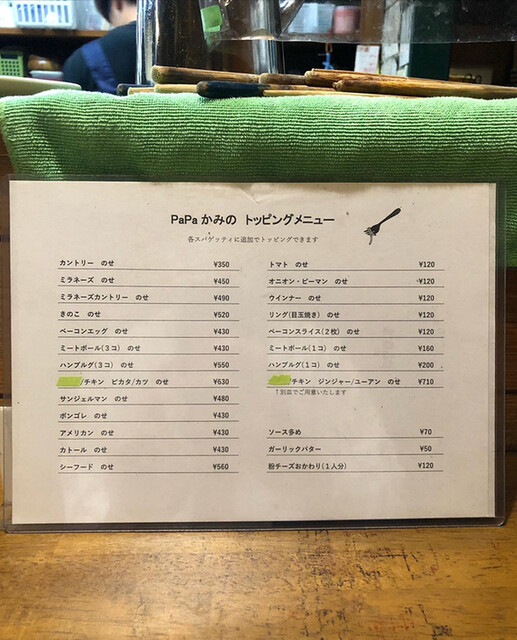 PaPa かみの トッピングメニュー
各スパゲッティに追加でトッピングできます
カントリー のせ ¥350
ミラネーズ のせ ¥450
ミラネーズカントリー のせ ¥490
きのこ のせ ¥520
ベーコンエッグ のせ ¥430
ミートボール(3コ) のせ ¥430
ハンブルグ(3コ) のせ ¥550
/チキン ピカタ/カツ のせ ¥630
サンジェルマン のせ ¥480
ボンゴレ のせ ¥430
アメリカン のせ ¥430
カトール のせ ¥430
シーフード のせ ¥560
トマト のせ ¥120
オニオン・ピーマン のせ ¥120
ウインナー のせ ¥120
リング(目玉焼き) のせ ¥120
ベーコンスライス(2枚) のせ ¥120
ミートボール(1コ) のせ ¥160
ハンブルグ(1コ) のせ ¥200
/チキン ジンジャー/ユーアン のせ ¥710
↑別皿でご用意いたします
ソース多め ¥70
ガーリックバター ¥50
粉チーズおかわり(1人分) ¥120